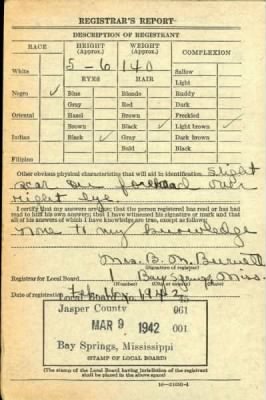 REGISTRAR'S REPORT
DESCRIPTION OF REGISTRANT
RACE HEIGHT (Approx.) WEIGHT (Approx.) COMPLEXION
White 5-6 140 Sallow
EYES HAIR Light
Negro ✓ Blue Blonde Ruddy
Gray Red Dark
Oriental Hazel Brown Freckled
Brown Black ✓ Light brown ✓
Indian Black ✓ Gray Dark brown
Bald Black
Filipino
Other obvious physical characteristics that will aid in identification slight
scar on forehead over
right eye
I certify that my answers are true; that the person registered has read or has had
read to him his own answers; that I have witnessed his signature or mark and that
all of his answers of which I have knowledge are true, except as follows:
none to my knowledge
Mrs. B. M.
(Signature of registrar)
Registrar for Local Board 1 Bay Springs Miss.
(Number) (City or county) (State)
Date of registration Feb 16 1942
Local Board No. 1
Jasper County 061
MAR 9 1942 001
Bay Springs, Mississippi
(STAMP OF LOCAL BOARD)
(The stamp of the Local Board having jurisdiction of the registrant
shall be placed in the above space)
16—21630-1